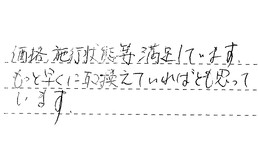 価格、施行状態等満足しています。
もっと早くに取換えていればとも思って
います。